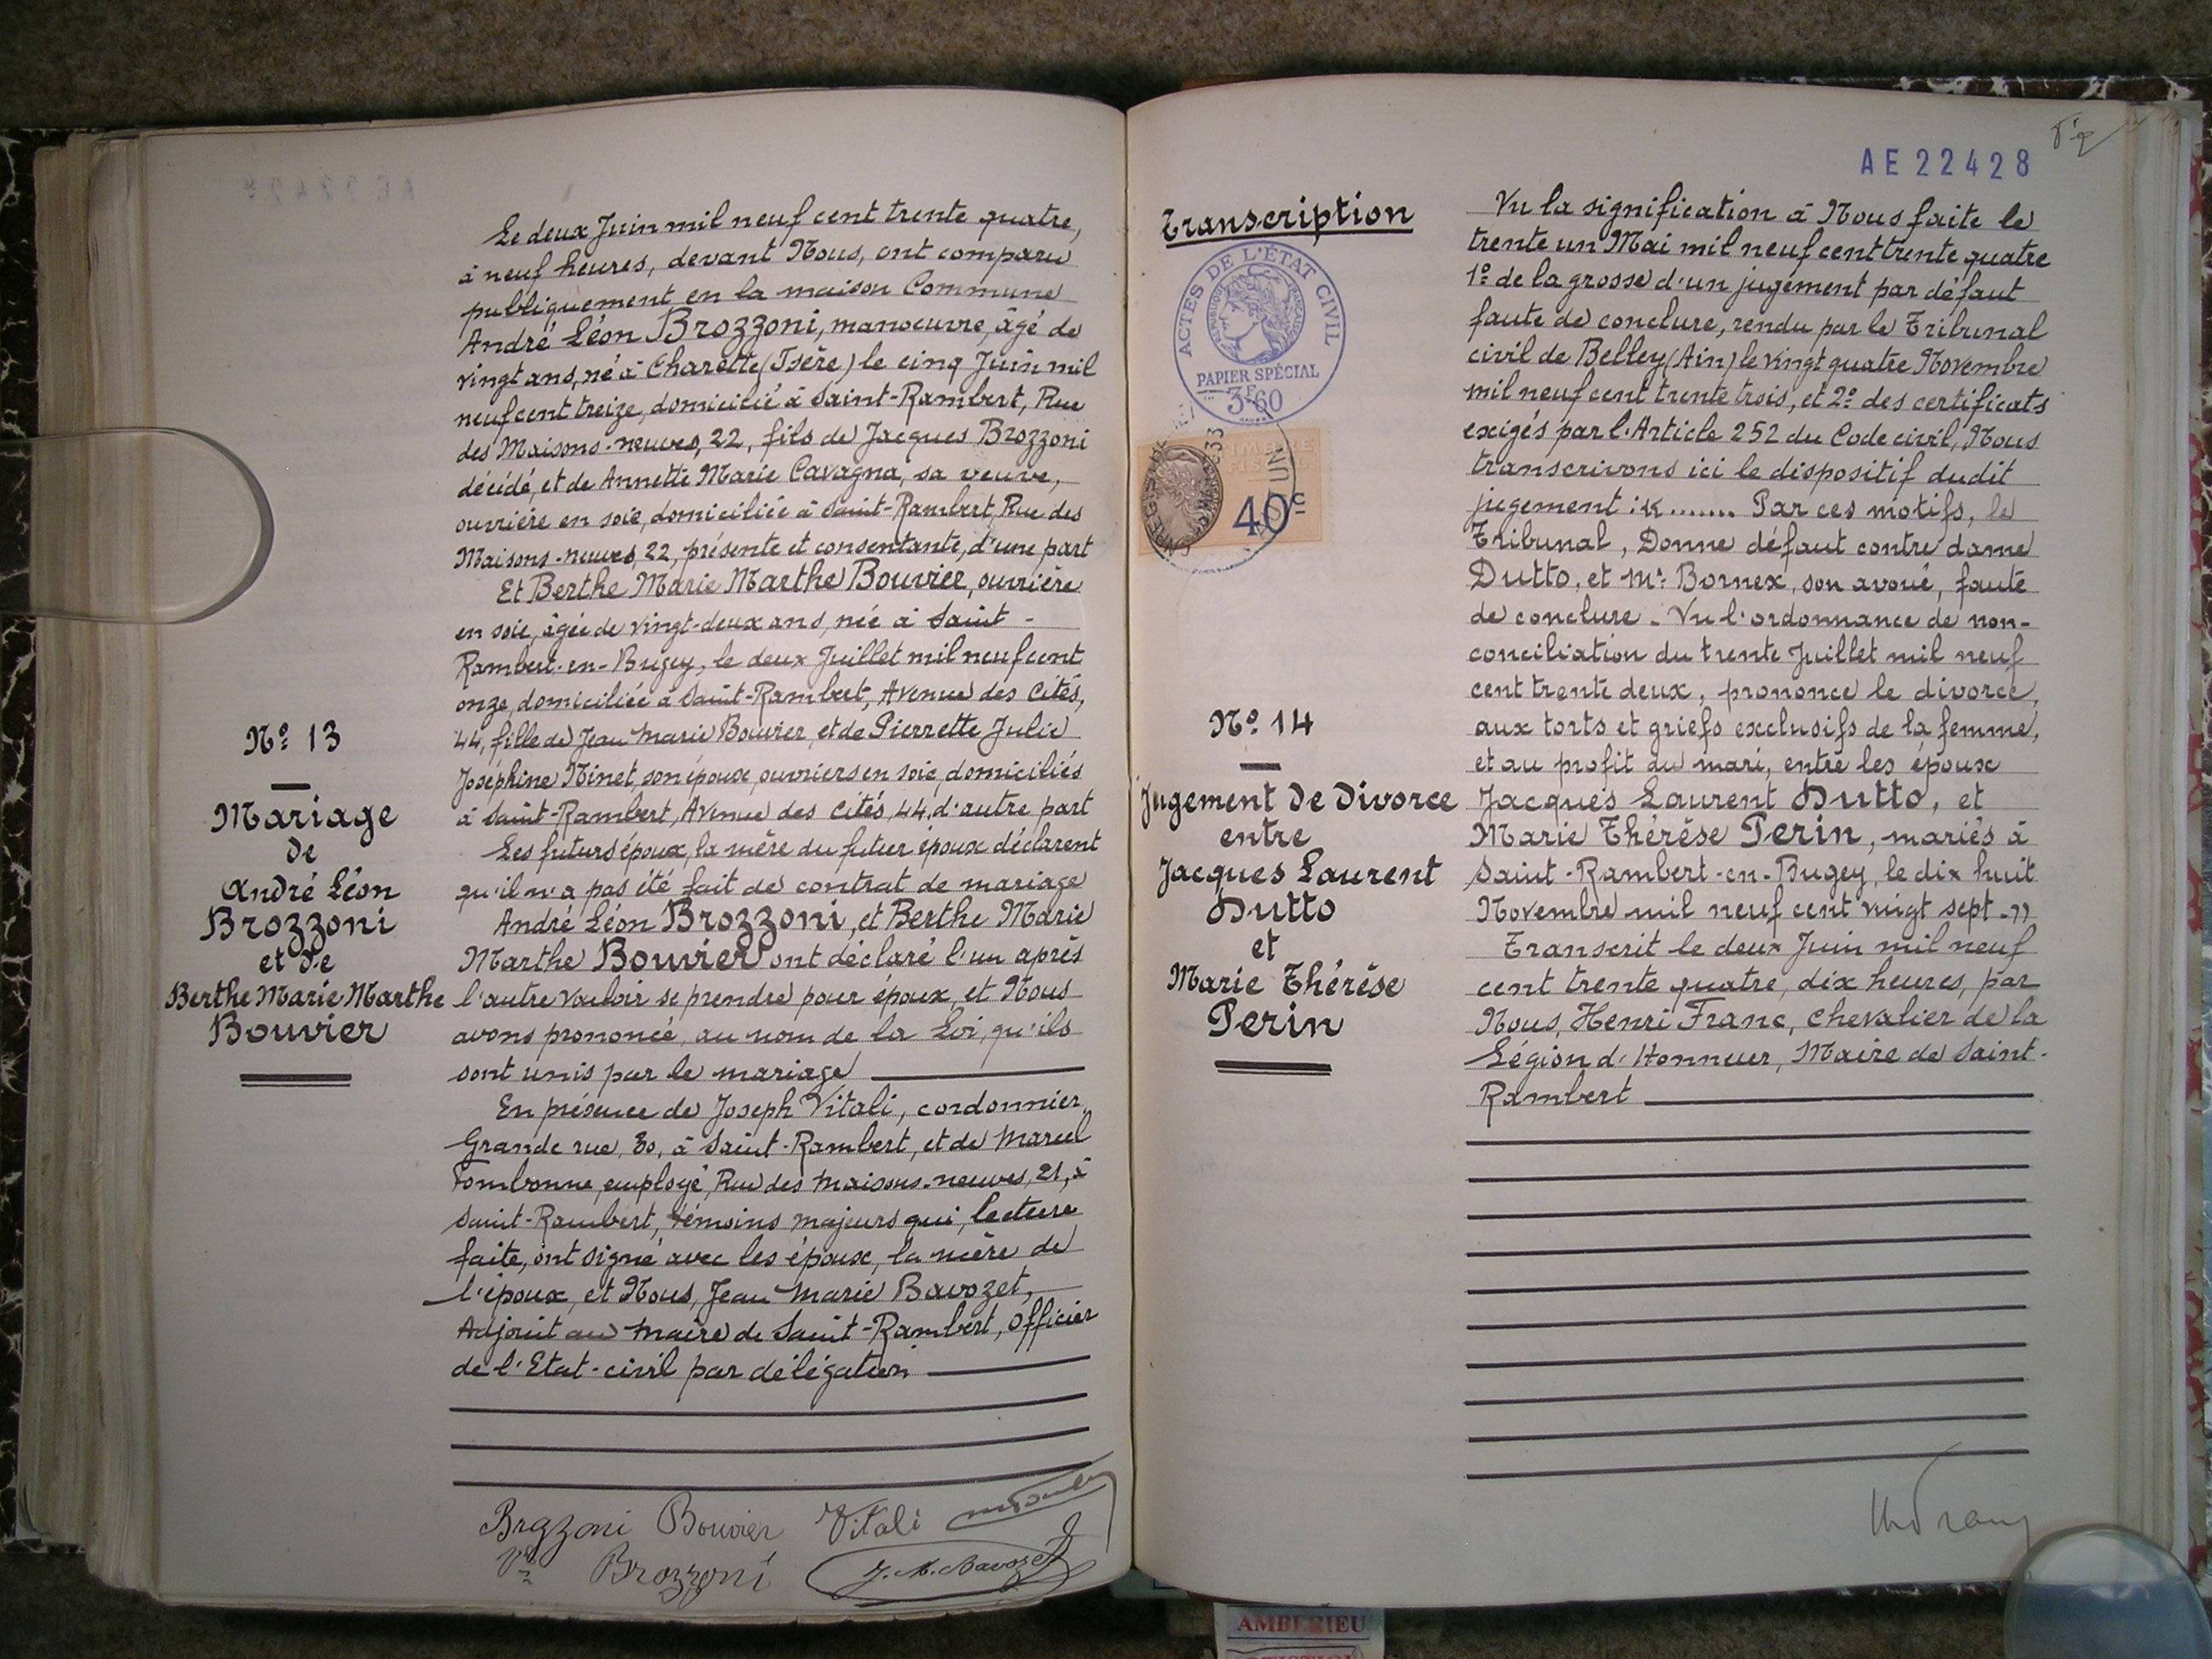 Le deux Juin mil neuf cent trente quatre,
à neuf heures, devant Nous, ont comparu
publiquement en la maison Commune
André Léon Brozzoni, manoeuvre, âgé de
vingt ans, né à Charette (Isère) le cinq Juin mil
neuf cent treize, domicilié à Saint-Rambert, Rue
des Maisons-neuves, 22, fils de Jacques Brozzoni
décédé, et de Annette Marie Cavagna, sa veuve,
ouvrière en soie, domiciliée à Saint-Rambert, Rue des
Maisons-neuves, 22, présente et consentante, d'une part
Et Berthe Marie Marthe Bouvier, ouvrière
en soie, âgée de vingt-deux ans, née à Saint-
Rambert-en-Bugey, le deux Juillet mil neuf cent
onze, domiciliée à Saint-Rambert, Avenue des Cités,
44, fille de Jean Marie Bouvier, et de Pierrette Julie
Joséphine Ninet, son épouse, ouvriers en soie, domiciliés
à Saint-Rambert, Avenue des Cités, 44, d'autre part
Les futurs époux, la mère du futur époux déclarent
qu'il n'a pas été fait de contrat de mariage
André Léon Brozzoni, et Berthe Marie
Marthe Bouvier ont déclaré l'un après
l'autre vouloir se prendre pour époux, et Nous
avons prononcé, au nom de la Loi, qu'ils
sont unis par le mariage
En présence de Joseph Vitali, cordonnier
Grande rue, 80, à Saint-Rambert, et de Marcel
Tombonne, employé, Rue des Maisons-neuves, 21, à
Saint-Rambert, témoins majeurs qui, lecture
faite, ont signé avec les époux, la mère de
l'époux, et Nous, Jean Marie Bavozet,
Adjoint au Maire de Saint-Rambert, Officier
de l'Etat-civil par délégation
Nº 13
Mariage
de
André Léon
Brozzoni
et de
Berthe Marie Marthe
Bouvier
Brozzoni Bouvier Vitali
Vve Brozzoni J. M. Bavozet
AE22428
Transcription
ACTES DE L'ÉTAT CIVIL
PAPIER SPÉCIAL
3F60
40c
Nº 14
Jugement de Divorce
entre
Jacques Laurent
Dutto
et
Marie Thérèse
Perin
Vu la signification à Nous faite le
trente un Mai mil neuf cent trente quatre
1º de la grosse d'un jugement par défaut
faute de conclure, rendu par le Tribunal
civil de Belley (Ain) le vingt quatre Novembre
mil neuf cent trente trois, et 2º des certificats
exigés par l'Article 252 du Code civil, Nous
transcrivons ici le dispositif dudit
jugement : « ....... Par ces motifs, le
Tribunal, Donne défaut contre dame
Dutto, et Me Bornex, son avoué, faute
de conclure - Vu l'ordonnance de non-
conciliation du trente Juillet mil neuf
cent trente deux, prononce le divorce,
aux torts et griefs exclusifs de la femme,
et au profit du mari, entre les époux
Jacques Laurent Dutto, et
Marie Thérèse Perin, mariés à
Saint-Rambert-en-Bugey, le dix huit
Novembre mil neuf cent vingt sept - »
Transcrit le deux Juin mil neuf
cent trente quatre, dix heures, par
Nous, Henri Franc, Chevalier de la
Légion d'Honneur, Maire de Saint-
Rambert
AMBERIEU